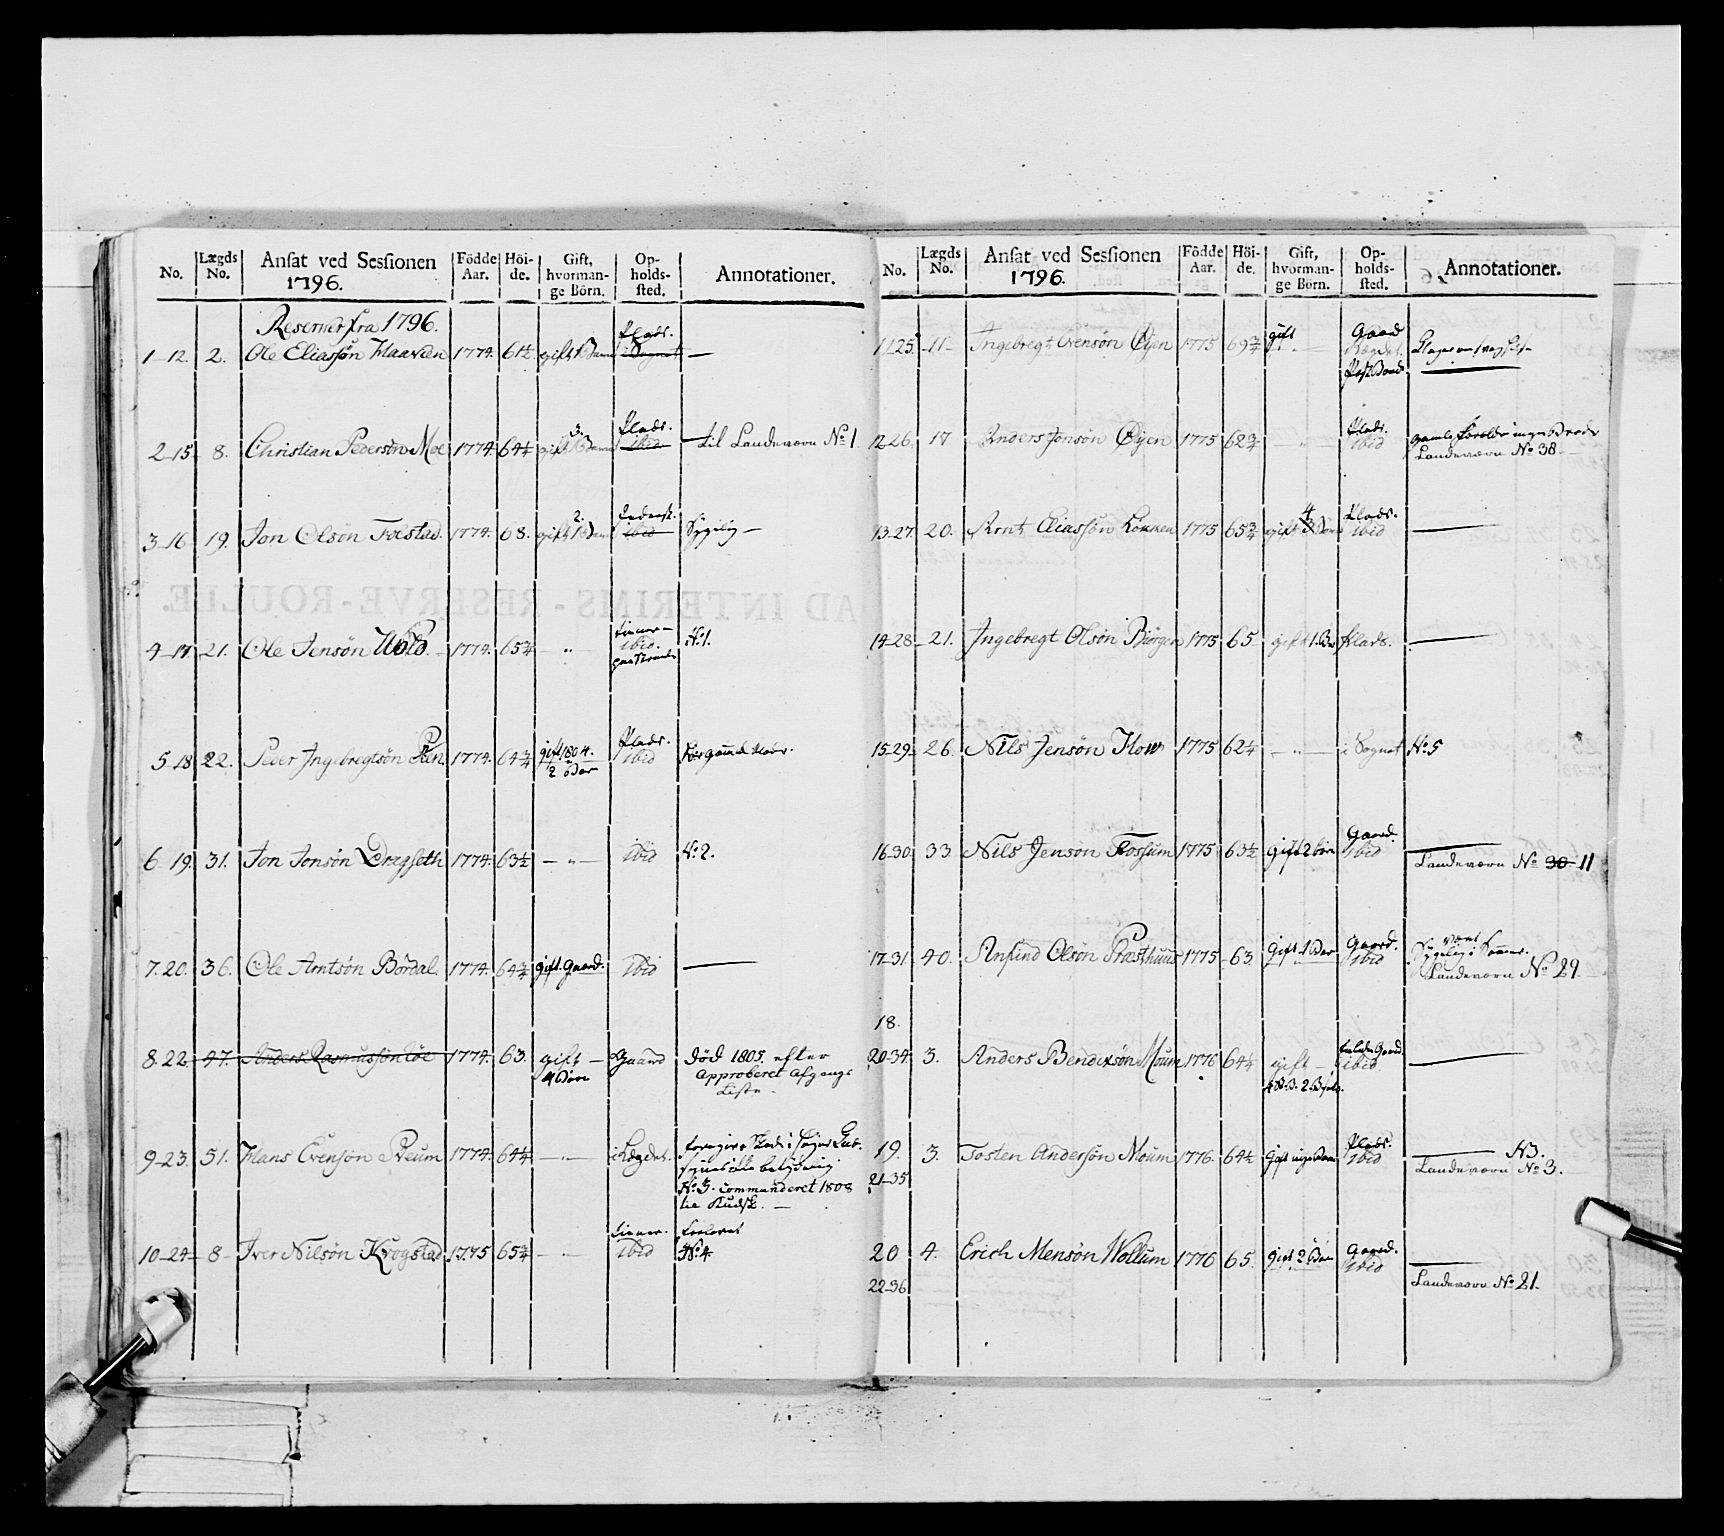 No. Lægds No. Ansat ved Sessionen 1796. Födde Aar. Höi-de. Gift, hvorman-ge Börn. Op-holds-sted. Annotationer.
Reserver fra 1796.
1-12. 2. Ole Eliassøn Haavden 1774. 61½ gift 1 Barn Plads. i Sognet —
2-15. 8. Christian Pedersøn Moe 1774 64¼ gift 3. Plads. ibid til Landeværn No 1
3-16 19. Jon Olsøn Folstad. 1774. 68. gift 2. ibid Sygelig —
4-17. 21. Ole Jensøn Uold. 1774. 65¾ — " — tiener — ibid. No 1.
5-18 22. Peder Ingebregtsøn Ren 1774. 64¾ gift 1804. 2 Bør Plads. ibid
6 19. 31. Jon Jonsøn Dragseth 1774. 63½ — " — ibid No 2.
7. 20. 36. Ole Arntsøn Børdal. 1774. 64¾ gift. Gaard. ibid —
8. 22. 47. Anders Rasmussøn Løe 1774. 63. gift — 4 Børn Gaard død 1805. efter
approberet Afgangs
Liste.
9-23. 51. Hans Evensøn Reum 1774. 64¼ — " — i Lægdet.
No 3. commanderet 1808
10-24 8 Iver Nilsøn Krogstad 1775 65¾ — " — tiener. ibid
No 4
No. Lægds No. Ansat ved Sessionen 1796. Födde Aar. Höi-de. Gift, hvorman-ge Börn. Op-holds-sted. Annotationer.
11 25. 11 Ingebregt Evensøn Øyen 1775 69¾ gift Gaard Lægdet.
12 26. 17 Anders Jonsøn Øyen 1775 62¾ " Plads. ibid gamle Forældre ingen Brødr
Landeværn No 38.
13 27. 20. Arnt Eliassøn Løkken 1775 65¾ gift 4 Plads. ibid —
14-28. 21. Ingebregt Olsøn Biørgen 1775 65 gift 1. Bør Plads. —
15-29. 26. Nils Jensøn How 1775 62¼ — " — i Sognet No 5
16-30. 33 Nils Jensøn Fossum 1775 63½ Gift 2 børn Gaard. ibid —
Landeværn No 30 11
17-31 40. Anfind Olsøn Præsthuus 1775 63 Gift 1 Bør Gaard. ibid Sygelig i
Landeværn No 29
18.
20-34. 3. Anders Bendixsøn Moum 1776 64¼ gift — ibid. —
19. 3. Tosten Andersøn Moum 1776. 64½ Gift ingen Børn Plads. ibid — N3.
21-35 Landeværn No 3.
20 4. Erich Mensøn Wollum 1776 65. Gift 2 Bør Gaard. ibid —
22-36 Landeværn No 21.